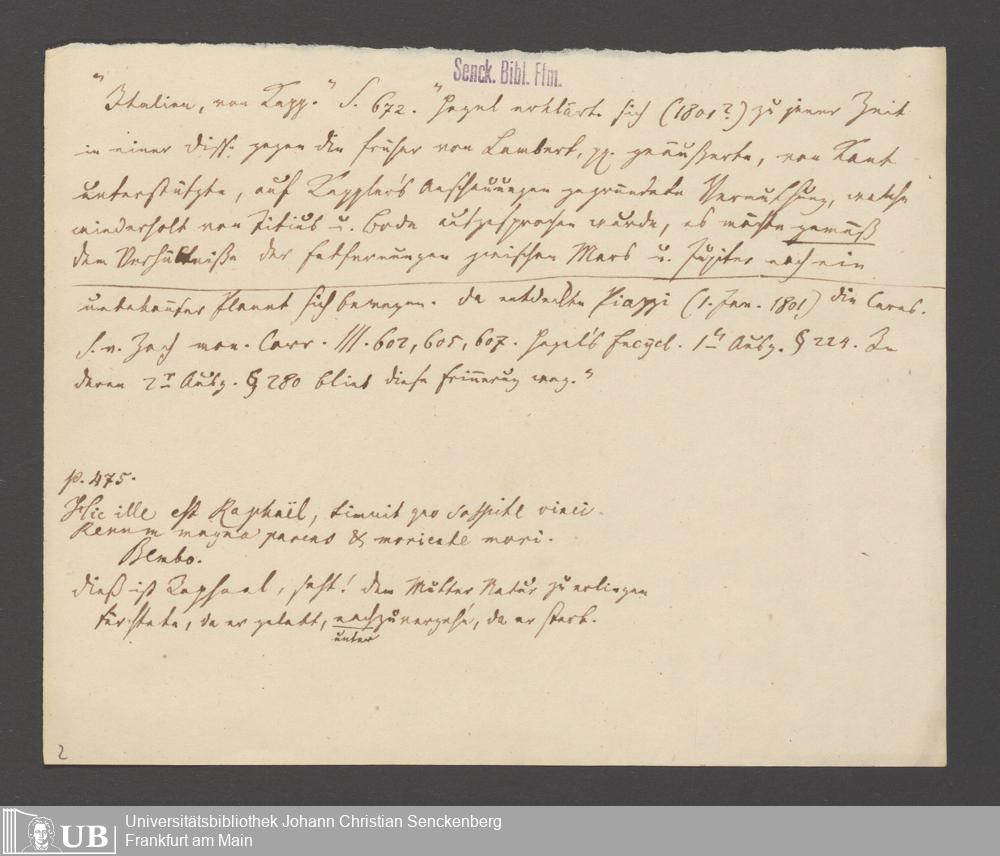 Senck. Bibl. Ffm.
"Italien, von Kapp." S. 672. "Hegel erklärte sich (1801?) zu jener Zeit
in einer Diss: gegen die früher von Lambert, pp. geäußerte, von Kant
unterstützte, auf Keppler's Anschauungen gegründete Vermuthung, welche
wiederholt von Titius u. Bode ausgesprochen wurde, es möchte gemäß
dem Verhältnisse der Entfernungen zwischen Mars u. Jupiter noch ein
unbekannter Planet sich bewegen. Da entdeckte Piazzi (1. Jan. 1801) die Ceres.
S. v. Zach mon. Corr. III. 602, 605, 607. Hegel's Encycl. 1te Ausg. § 224. In
deren 2r Ausg. § 280 blieb diese Erinnerung weg."
p. 475.
Hic ille est Raphaël, timuit quo sospite vinci
Rerum magna parens & moriente mori.
Bembo.
Dieß ist Raphael, seht! dem Mutter Natur zu erliegen
fürchtete, da er gelebt, nachzuvergehn, da er starb.
unter
2
UB
Universitätsbibliothek Johann Christian Senckenberg
Frankfurt am Main